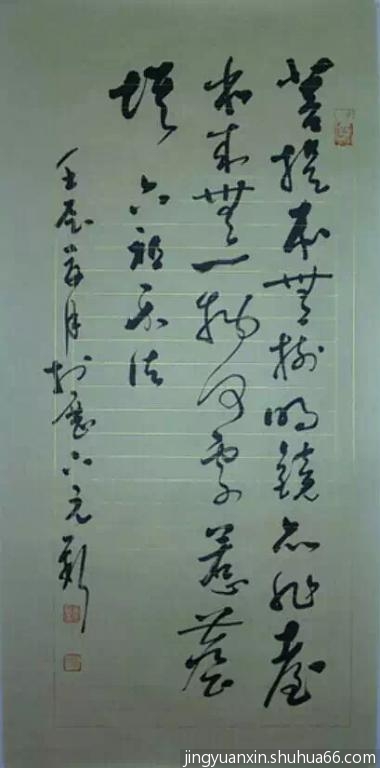 菩提本無樹明鏡亦非臺
本来無一物何處惹塵
埃 六祖示法
壬辰 月 元新
jingyuanxin.shuhua66.com